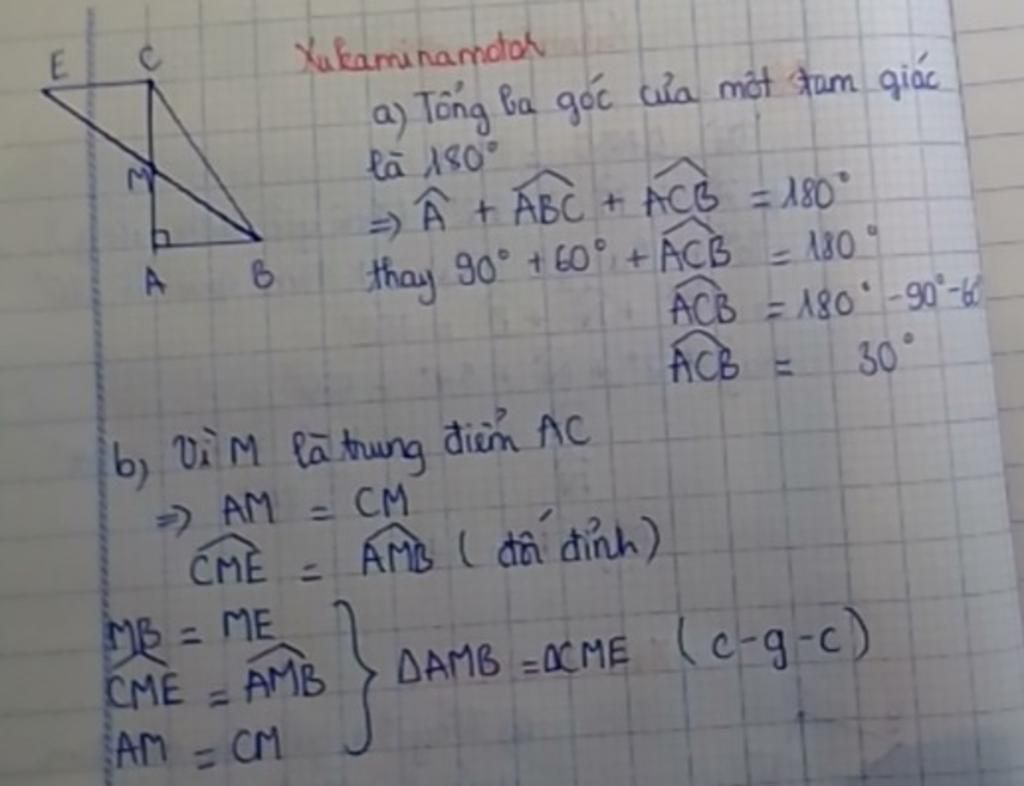 E C
M
A B
Xukaminamotoh
a) Tổng ba góc của một tam giác
là 180°
=> Â + ABĈ + ACB̂ = 180°
thay 90° + 60° + ACB̂ = 180°
ACB̂ = 180° - 90° - 60
ACB̂ = 30°
b) Vì M là trung điểm AC
=> AM = CM
CMÊ = AMB̂ (đối đỉnh)
MB = ME
CMÊ = AMB̂
AM = CM
ΔAMB = ΔCME (c-g-c)